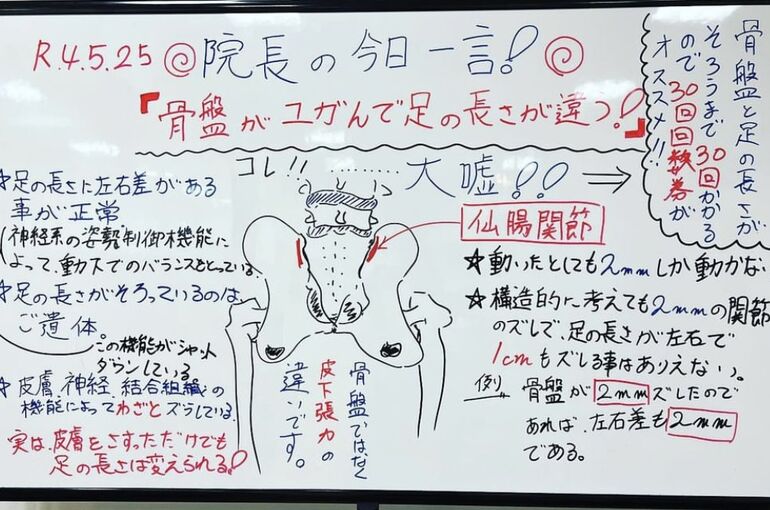 R.4.5.25 院長の今日一言!
「骨盤がユガんで足の長さが違う!」
コレ!! ……… 大嘘!!
骨盤と足の長さが
そろうまで30回かかる
ので30回回数券が
オススメ!!
☆足の長さに左右差がある
事が正常
(神経系の姿勢制御機能に
よって、動大でのバランスをとっている
☆足の長さがそろっているのは、
ご遺体。
この機能がシャット
ダウンしている
☆皮膚、神経、結合組織の
機能によってわざとズラしている。
実は、皮膚をさすっただけでも
足の長さは変えられる!
骨盤ではなく
皮下張力の
違いです。
仙腸関節
☆動いたとしても2mmしか動かない
☆構造的に考えても2mmの関節
のズレで、足の長さが左右で
1cmもズレる事はありえない。
例) 骨盤が2mmズレたので
あれば、左右差も2mm
である。